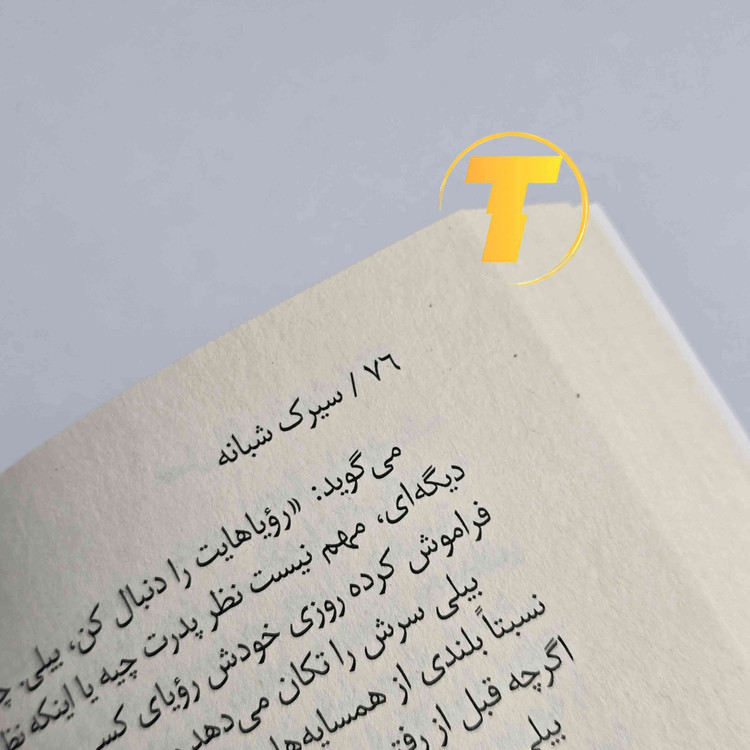 T
۷۶ / سیرک شبانه
می‌گوید: «رؤیاهایت را دنبال کن، بیلی.
دیگه‌ای، مهم نیست نظر پدرت چیه یا اینکه
فراموش کرده روزی خودش رؤیای
بیلی سرش را تکان می‌دهد
نسبتاً بلندی از
اگرچه قبل از
بیلی